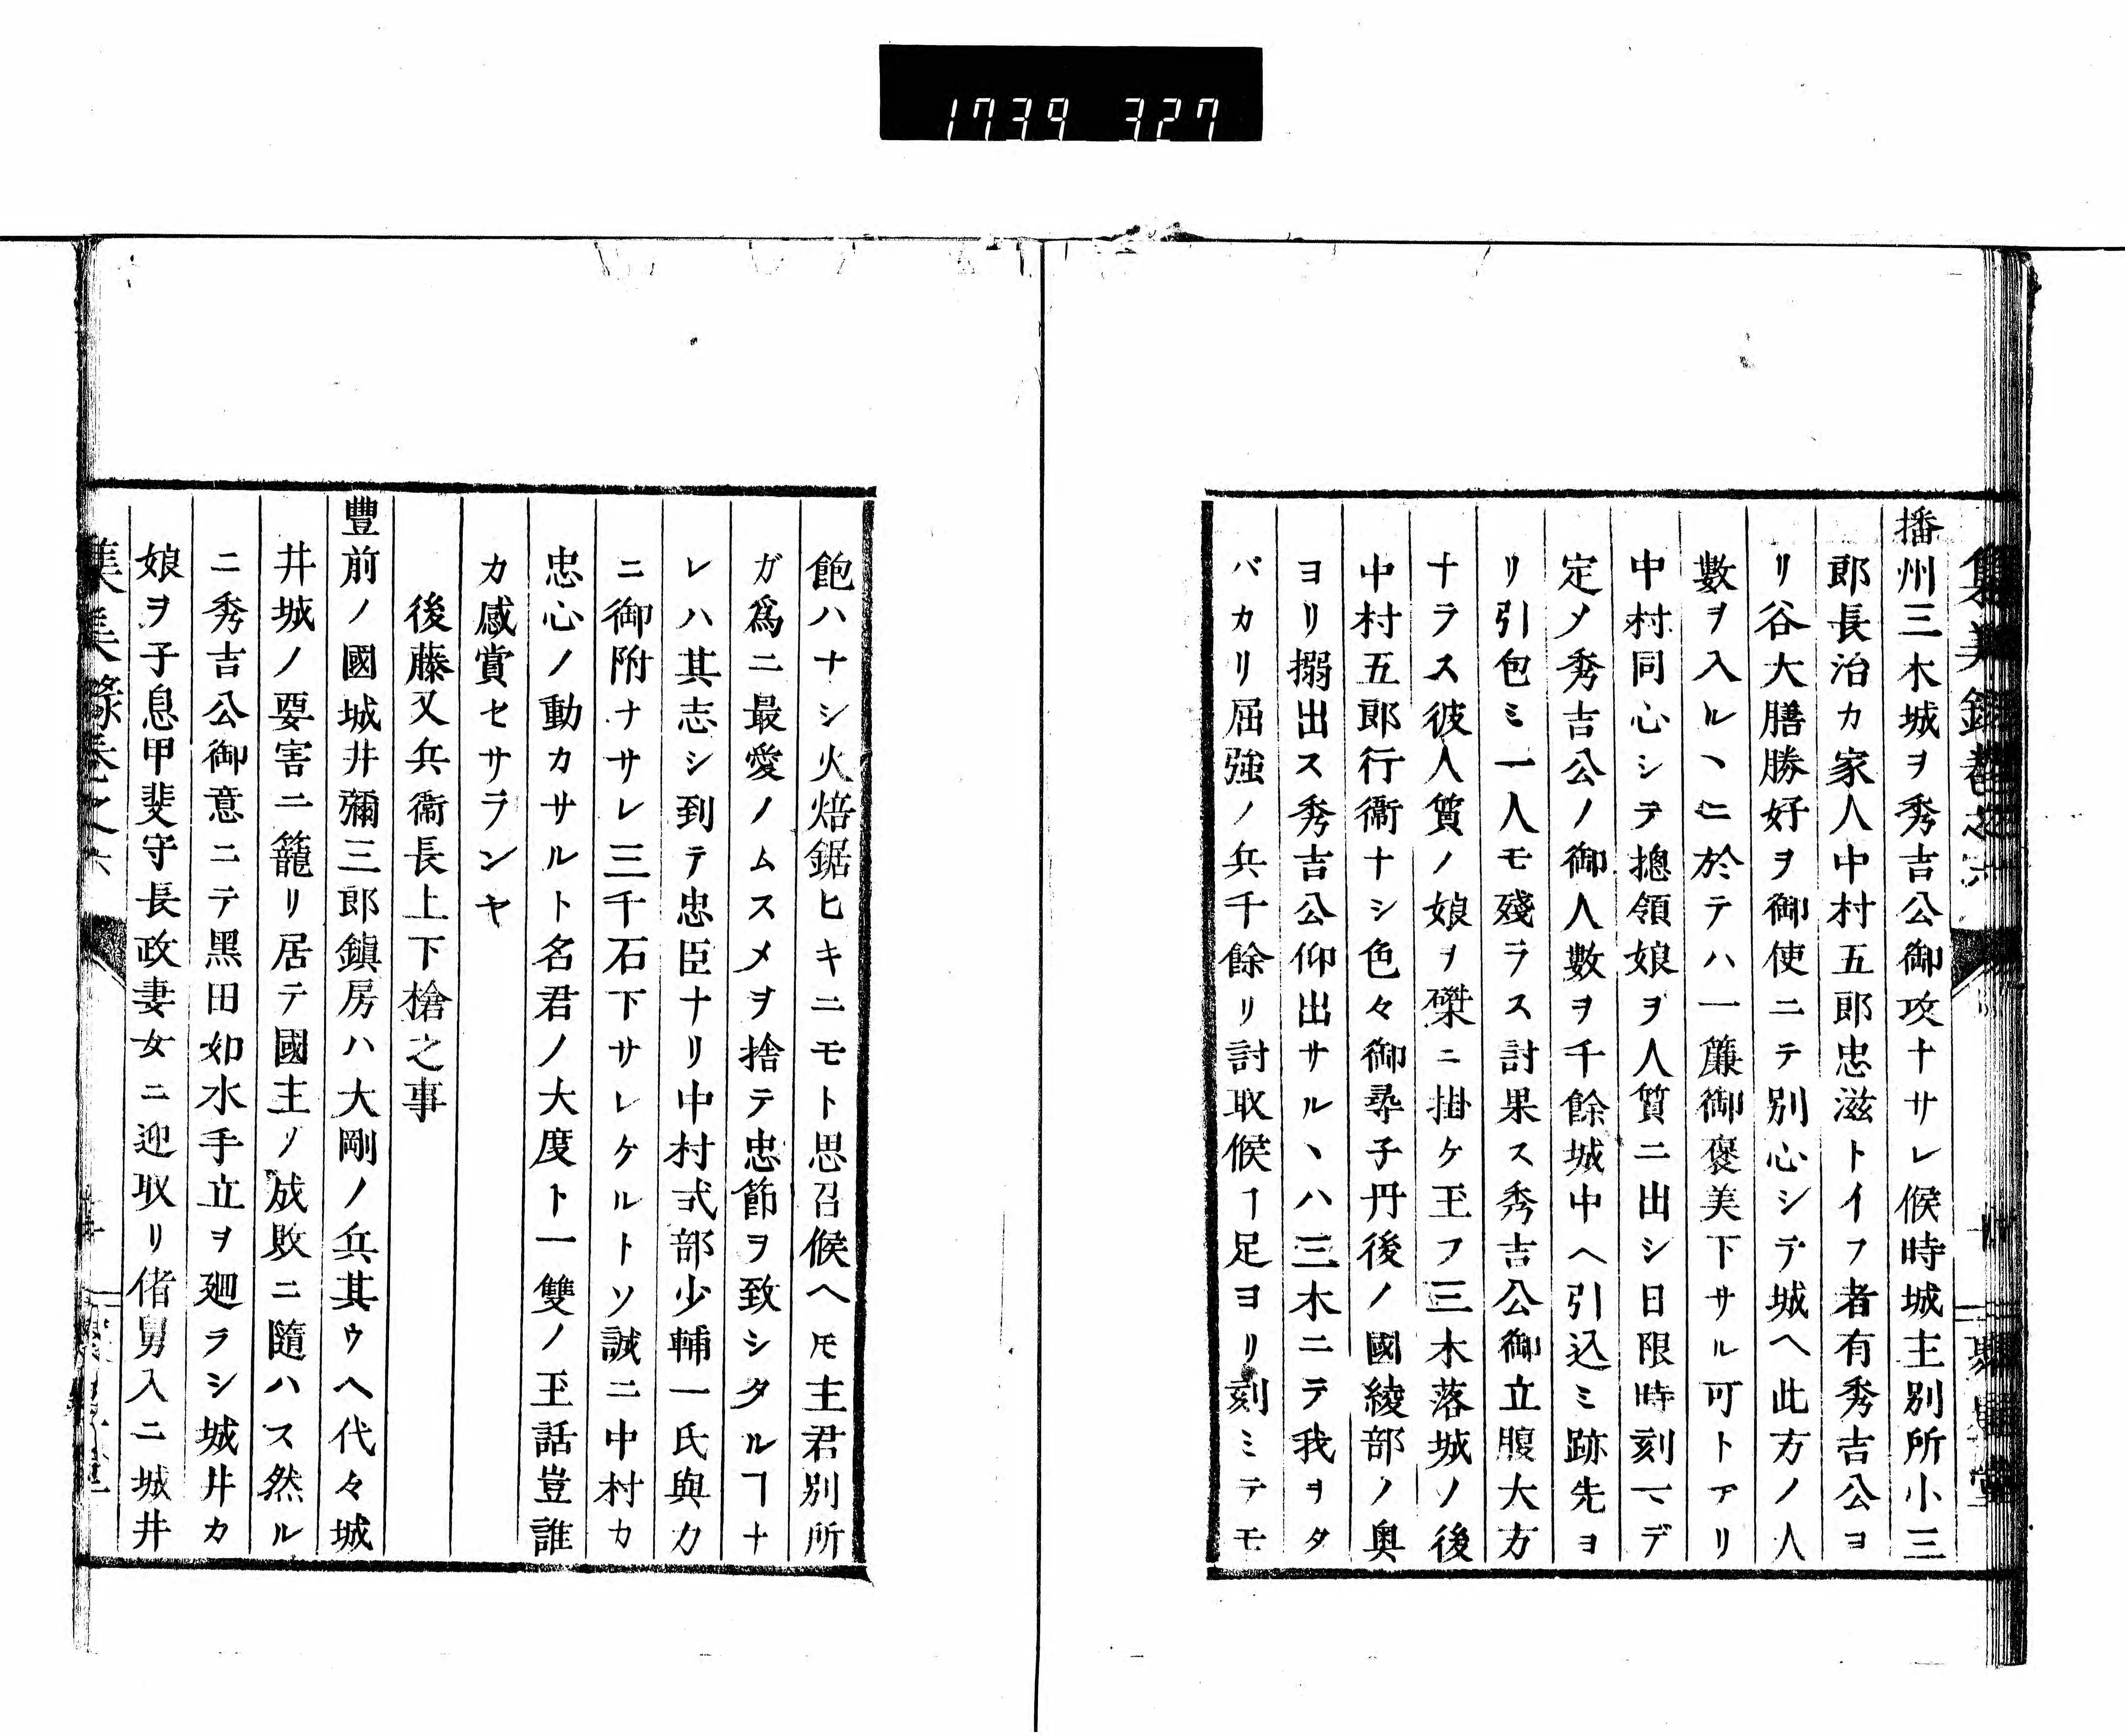 1739 327
播州三木城ヲ秀吉公御攻ナサレ候時城主別所小三
郎長治カ家人中村五郎忠滋トイフ者有秀吉公ヨ
リ谷大膳勝好ヲ御使ニテ別心シテ城ヘ此方ノ人
數ヲ入ルヽニ於テハ一廉御褒美下サル可トアリ
中村同心シテ摠領娘ヲ人質ニ出シ日限時刻マデ
定メ秀吉公ノ御人數ヲ千餘城中ヘ引込ミ跡先ヨ
リ引包ミ一人モ殘ラス討果ス秀吉公御立腹大方
ナラス彼人質ノ娘ヲ磔ニ掛ケ玉フ三木落城ノ後
中村五郎行衞ナシ色々御尋子丹後ノ國綾部ノ奥
ヨリ搦出ス秀吉公仰出サルヽハ三木ニテ我ヲタ
バカリ屈強ノ兵千餘リ討取候ヿ足ヨリ刻ミテモ
飽ハナシ火焙鋸ヒキニモト思召候ヘ𪜈主君別所
ガ爲ニ最愛ノムスメヲ捨テ忠節ヲ致シタルヿナ
レハ其志シ到テ忠臣ナリ中村式部少輔一氏與力
ニ御附ナサレ三千石下サレケルトソ誠ニ中村カ
忠心ノ動カサルト名君ノ大度ト一雙ノ玉話豈誰
カ感賞セサランヤ
後藤又兵衞長上下槍之事
豐前ノ國城井彌三郎鎭房ハ大剛ノ兵其ウヘ代々城
井城ノ要害ニ籠リ居テ國主ノ成敗ニ隨ハス然ル
ニ秀吉公御意ニテ黑田如水手立ヲ廻ラシ城井カ
娘ヲ子息甲斐守長政妻女ニ迎取リ偖舅入ニ城井
集義錄卷之六